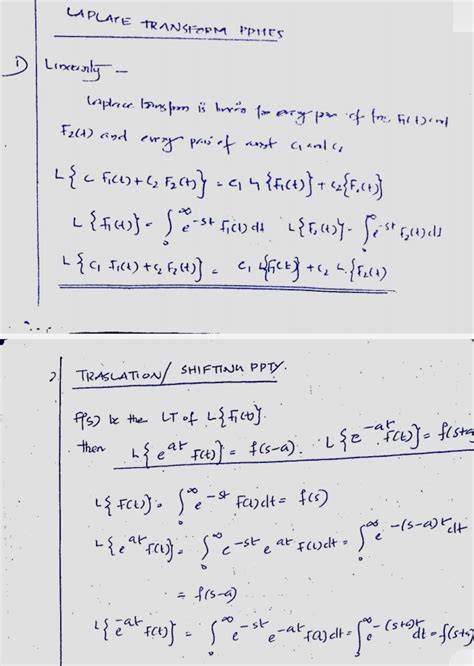 LAPLACE TRANSFORM PPTIES
1) Linearity -
Laplace transform is linear for every pair of fns F₁(t) and
F₂(t) and every pair of const c₁ and c₂
L{c F₁(t)+c₂ F₂(t)} = c₁ L{F₁(t)} + c₂{F₂(t)}
L{F₁(t)} = ∫₀^∞ e^-st F₁(t) dt L{F₂(t)} = ∫₀^∞ e^-st F₂(t) dt
L{c₁ F₁(t)+c₂ F₂(t)} = c₁ L{F₁(t)} + c₂ L{F₂(t)
2) TRASLATION/ SHIFTING PPTY.
f(s) be the LT of L{F₁(t)}
then L{e^at F(t)} = f(s-a). L{e^-at F(t)} = f(s+a
L{F(t)} = ∫₀^∞ e^-st F(t) dt = f(s)
L{e^at F(t)} = ∫₀^∞ e^-st e^at F(t) dt = ∫₀^∞ e^-(s-a)t dt
= f(s-a)
L{e^-at F(t)} = ∫₀^∞ e^-st e^-at F(t) dt = ∫₀^∞ e^-(s+a)t dt = f(s+a)